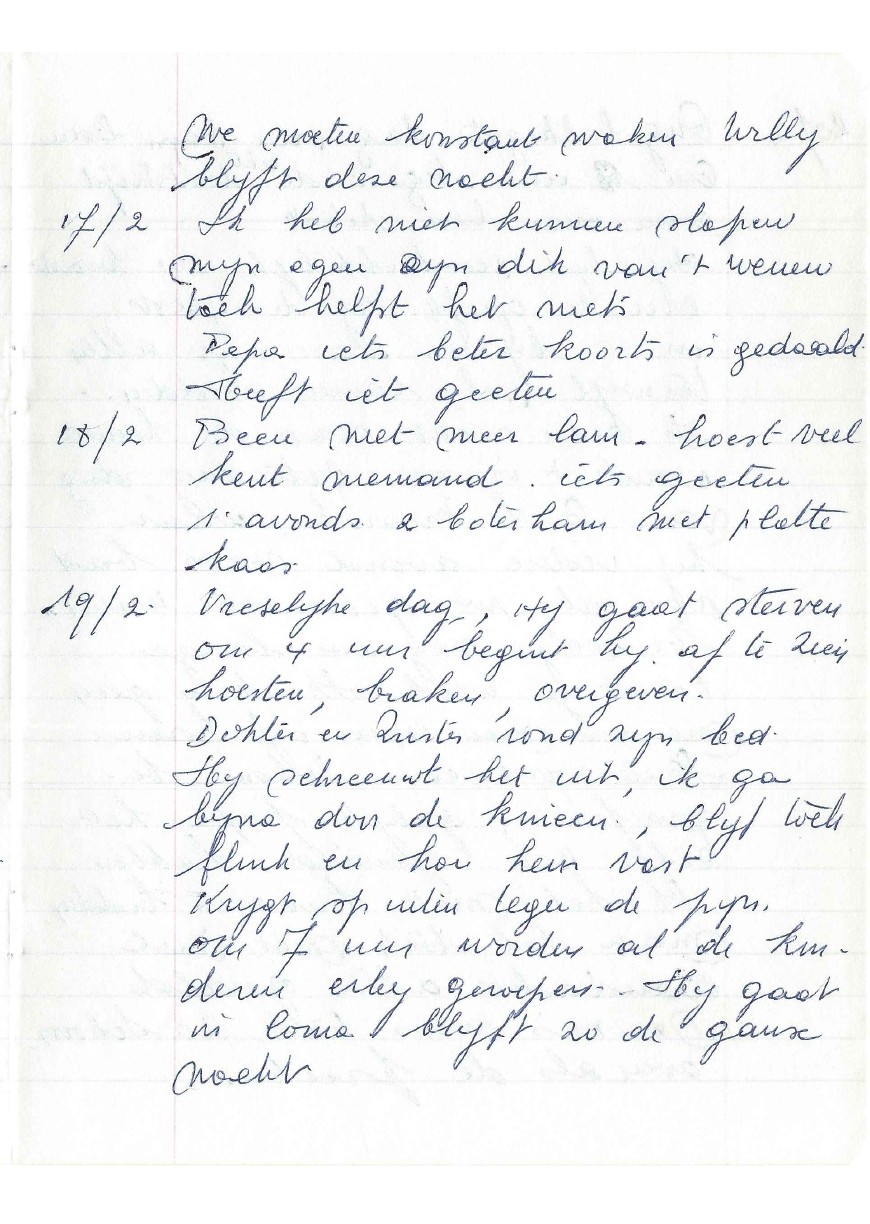 We moeten konstant waken Willy
blyft deze nacht.
17/2 Ik heb niet kunnen slapen
myn ogen zyn dik van't wenen
toch helpt het niets
Papa iets beter koorts is gedaald.
Heeft iet geeten
18/2 Been niet meer lam - hoest veel
kent niemand. iets geeten
s'avonds 2 boterham met platte
kaas.
19/2. Vreselyke dag, Hy gaat sterven
om 4 uur begint hy af te zien
hoesten, braken, overgeven.
Dokter en Zuster rond zyn bed.
Hy schreeuwt het uit, ik ga
byna door de knieen, blyf toch
flink en hou hem vast
Krygt sp tegen de pyn.
om 7 uur worden al de kin-
deren erby geroepen - Hy gaat
in coma blyft zo de ganse
nacht